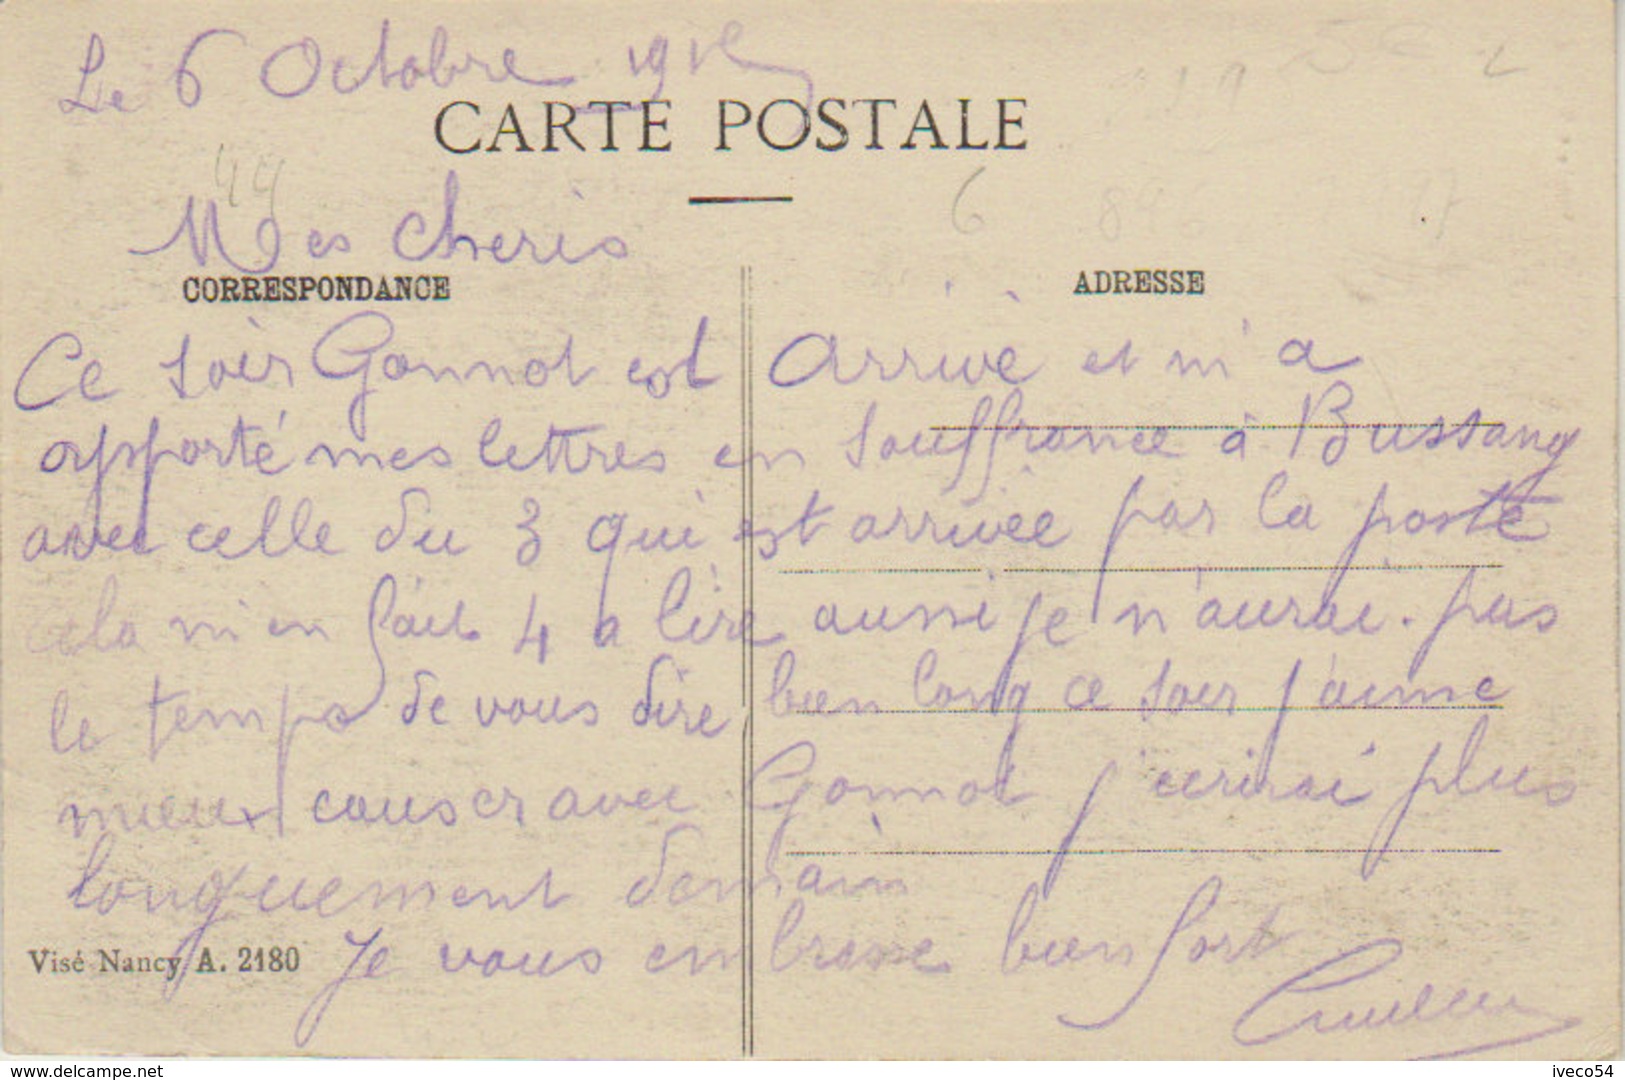 Le 6 Octobre 191
CARTE POSTALE
44
Mes cheris
6
CORRESPONDANCE
ADRESSE
Ce soir Gonnot est arrivé et m'a
apporté mes lettres en souffrance à Bussang
avec celle du 3 qui est arrivée par la poste
cela m'en fait 4 a lire aussi je n'aurai pas
le temps de vous dire bien long ce soir j'aime
mieux causer avec Gonnot j'ecrirai plus
longuement demain
Je vous embrasse bien fort
Visé Nancy A. 2180
delcampe.net
iveco54